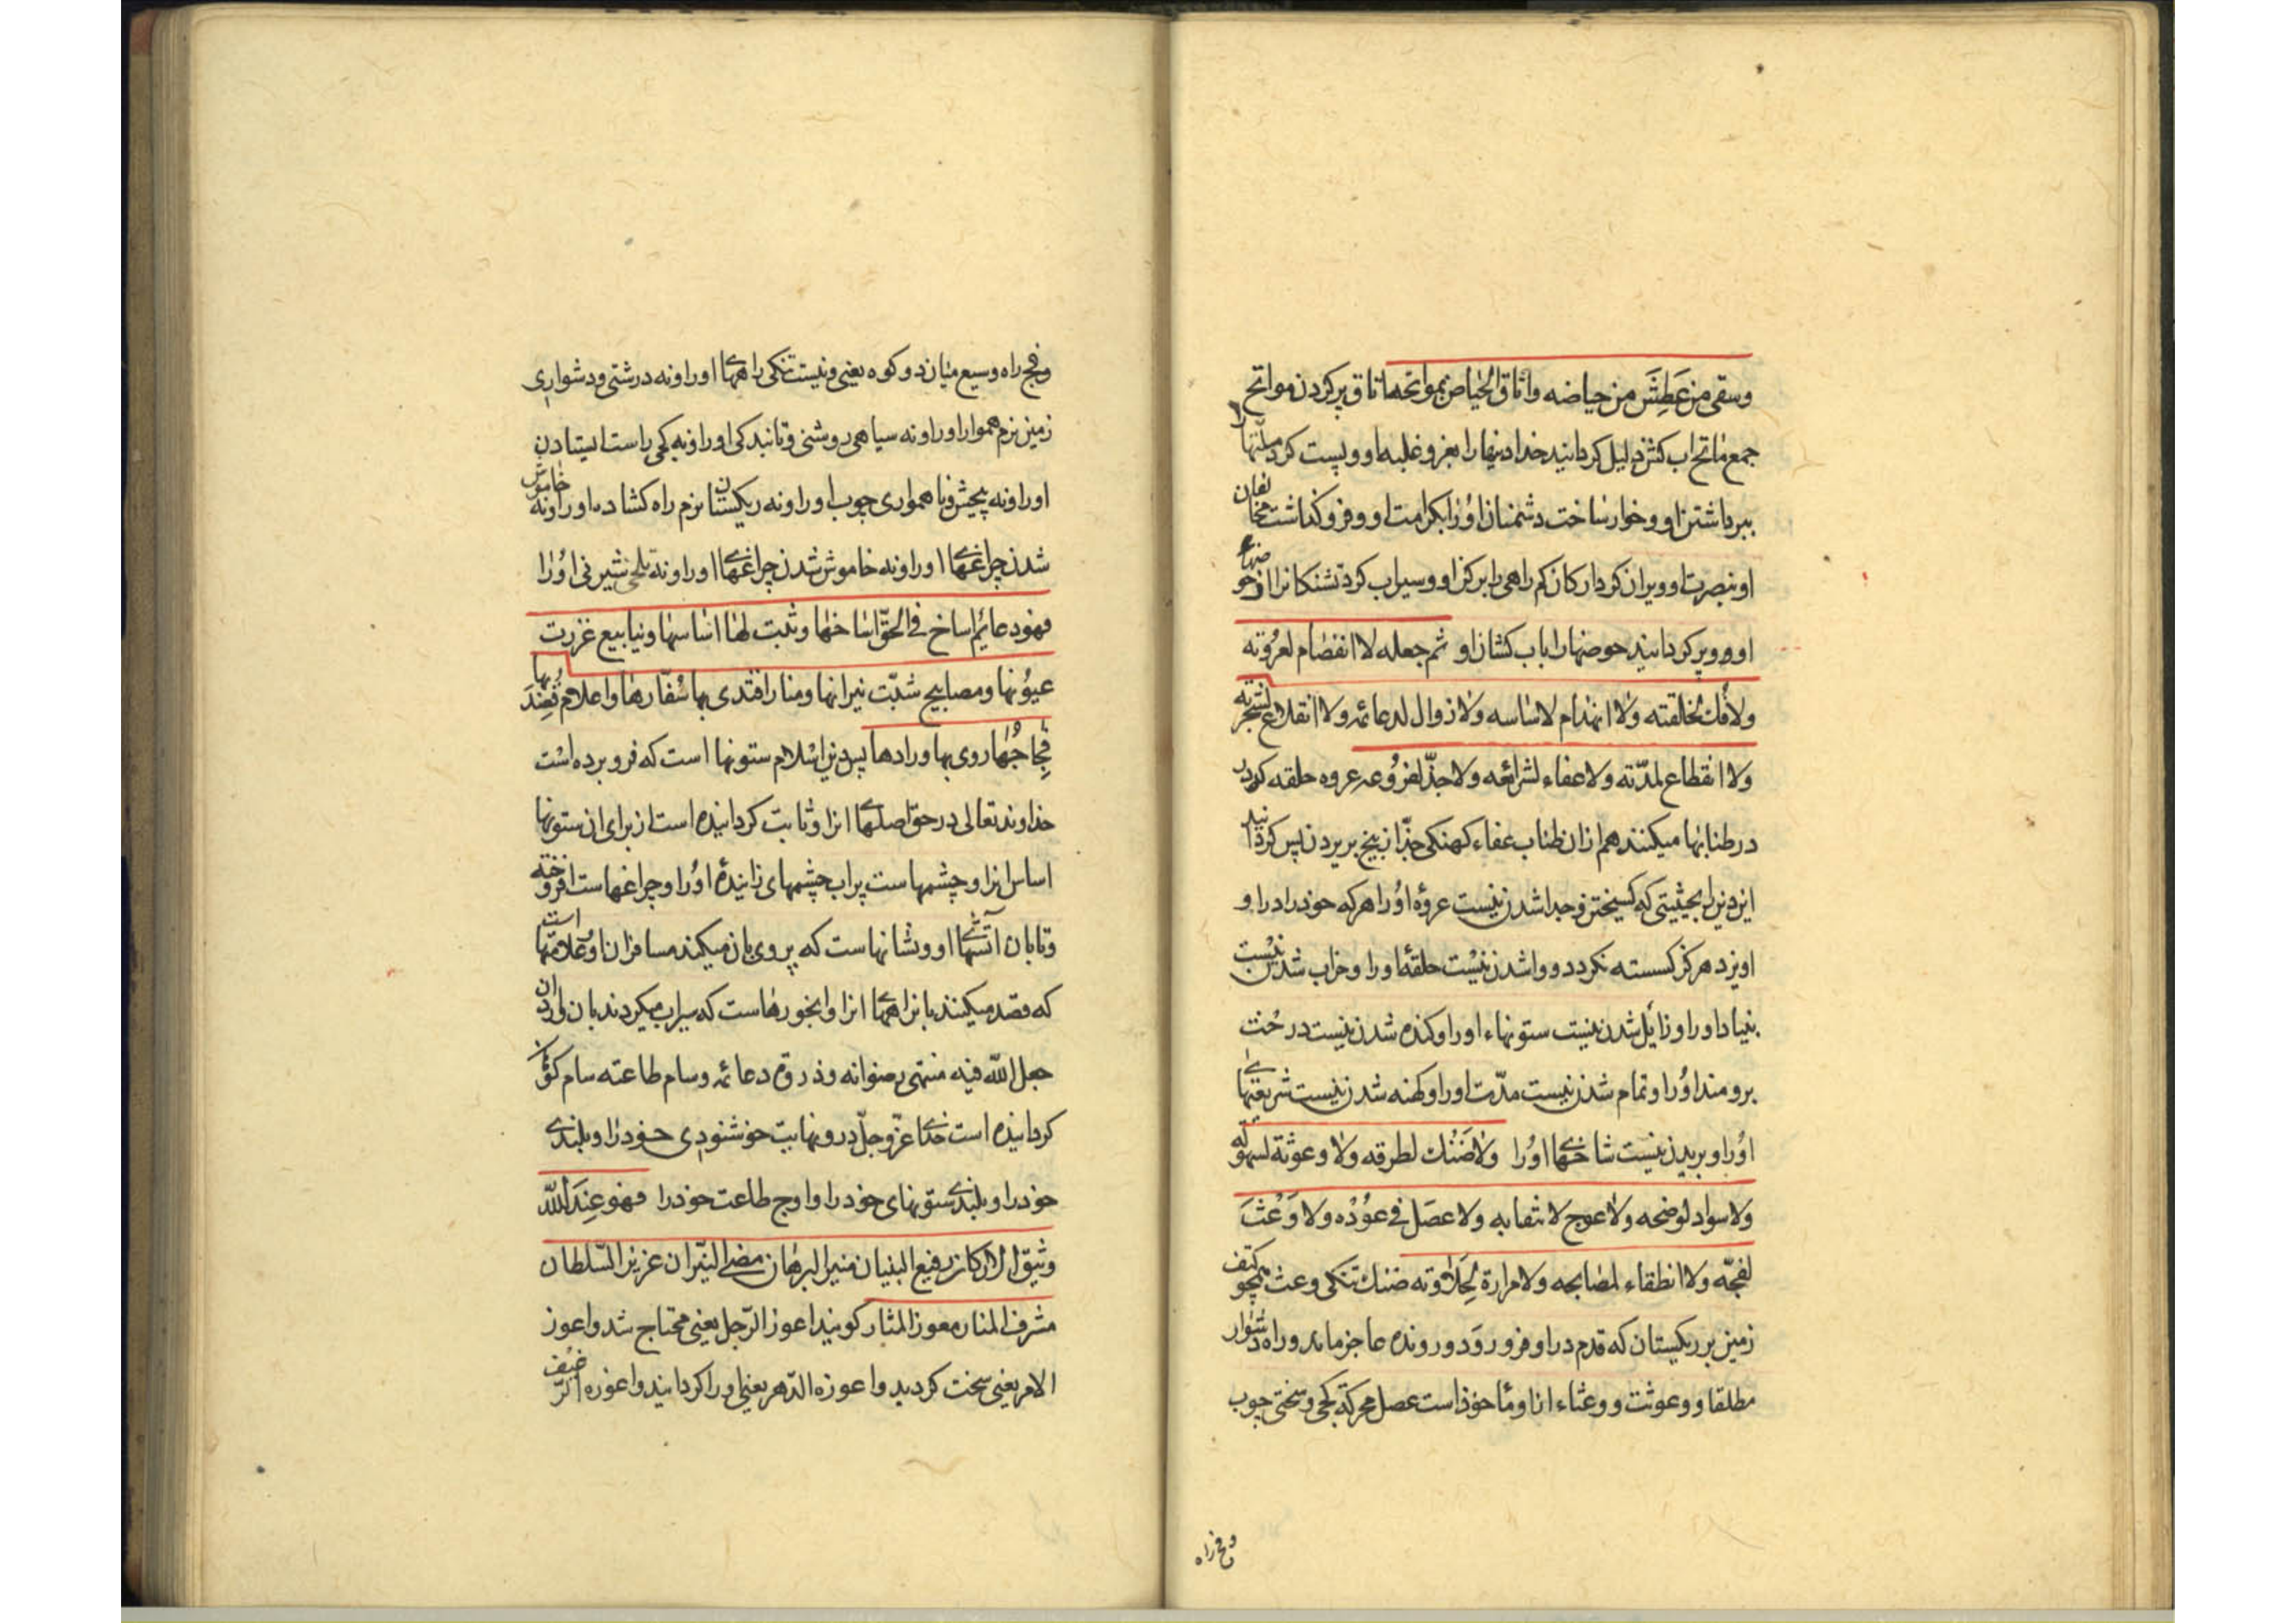 وسقی من عَطِشَ من حیاضه واتاق الحیاض بمواتحه اتاق پر کردن مواتح
جمع ماتح اب کش ذلیل کردانید خدا دینها را بعز و غلبه او و پست کرد ملّتها را
ببرداشتن او و خوار ساخت دشمنان اوُرا بکرامت او و فرو کذاشت مخالفان
او بنصرت او و ویران کرد ارکان کم راهی را برکن او و سیراب کرد تشنکانرا از حوضهای
او و پر کردانید حوضها را باب کشان او ثم جعله لا انفصام لعرُوته
ولا فک لحلقته ولا انهدام لاساسه ولا زوال لدعائمه ولا انقلاع لشجرته
ولا انقطاع لمدّته ولا عفاء لشرائعه ولا جذّ لفرُوعه عروه حلقه که در
در طنابها میکنند هم از ان طناب عفاء کهنکی جذّ از بیخ بریدن پس کردانید
این دین را بحیثیتی که کسیختن و جدا شدن نیست عروهٔ اوُرا هر که خود را در او
اویزد هرکز کسسته نکردد و واشدن نیست حلقهٔ اورا و خراب شدن نیست
بنیاد اورا و زایل شدن نیست ستونهاء اورا و کنده شدن نیست درخت
برومند اوُرا و تمام شدن نیست مدّت اورا و کهنه شدن نیست شریعتهای
اوُرا و بریدن نیست شاخهای اوُرا ولا ضَنْک لطرقه ولا وعوثة لسهولته
ولا سواد لوضحه ولا عوج لانتصابه ولا عصَل فی عوُدْه ولا وَعْثَ
لفجّه ولا انطفاء لمصابحه ولا مرارة لِحَلاوته ضنک تنکی وعث همچو کتف
زمین بر ریکیستان که قدم در او فرو رود و رونده عاجز ماند و راه دشوار
مطلقا و وعوثت و وعثاء از او مأخوذ است عصل محرکة کجی و سختی چوب
و فج راه
و فج راه وسیع میان دو کوه یعنی و نیست تنکی راههای اورا و نه درشتی و دشواری
زمین نرم هموار اورا و نه سیاهی روشنی و تابندکی اورا و نه کجی راست ایستادن
اورا و نه پیچش و ناهمواری چوب اورا و نه ریکیستان نرم راه کشاده اورا و نه خاموش
شدن چراغهای اورا و نه خاموش شدن چراغهای اورا و نه تلخی شیرینی اوُرا
فهو دعائم اساخ فی الحقّ اسناخها و ثبت لها اساسها و ینابیع غزرت
عیوُنها و مصابیح شبّت نیرانها و منار اقتدی بها سُفّارها و اعلام قُصِدَ بها
فِجاجُها و مناهل روی بها ورادها پس دین اسْلام ستونها است که فرو برده اسْت
خداوند تعالی در حق اصلهای انرا و ثابت کردانیده است از برای ان ستونها
اساس انرا و چشمهاست پراب چشمهای زاینده اوُرا و چراغهاست افروخته
و تابان است آتشهای او و نشانهاست که پیروی بان میکنند مسافران او و علامتها
که قصد میکنند بان راههای انرا و ابخورهاست که سیراب میکردند بان واردان
جعل اللّه فیه منتهی رضوانه و ذروة دعائمه و سنام طاعته سنام کوهان
کردانیده است خدای عزّ و جلّ در و نهایت خوشنودی خود را و بلندی
خود را و بلندی ستونهای خود را و اوج طاعت خود را فهو عِندَ اللّٰه
وثیق الارکان رفیع البنیان منیر البرهان مضیٔ النیّران عزیز السّلطان
مشرف المنار معوز المثار کویند اعوز الرّجل یعنی محتاج شد و اعوز
الامر یعنی سخت کردید و اعوزه الدّهر یعنی اورا کردانید و اعوزه